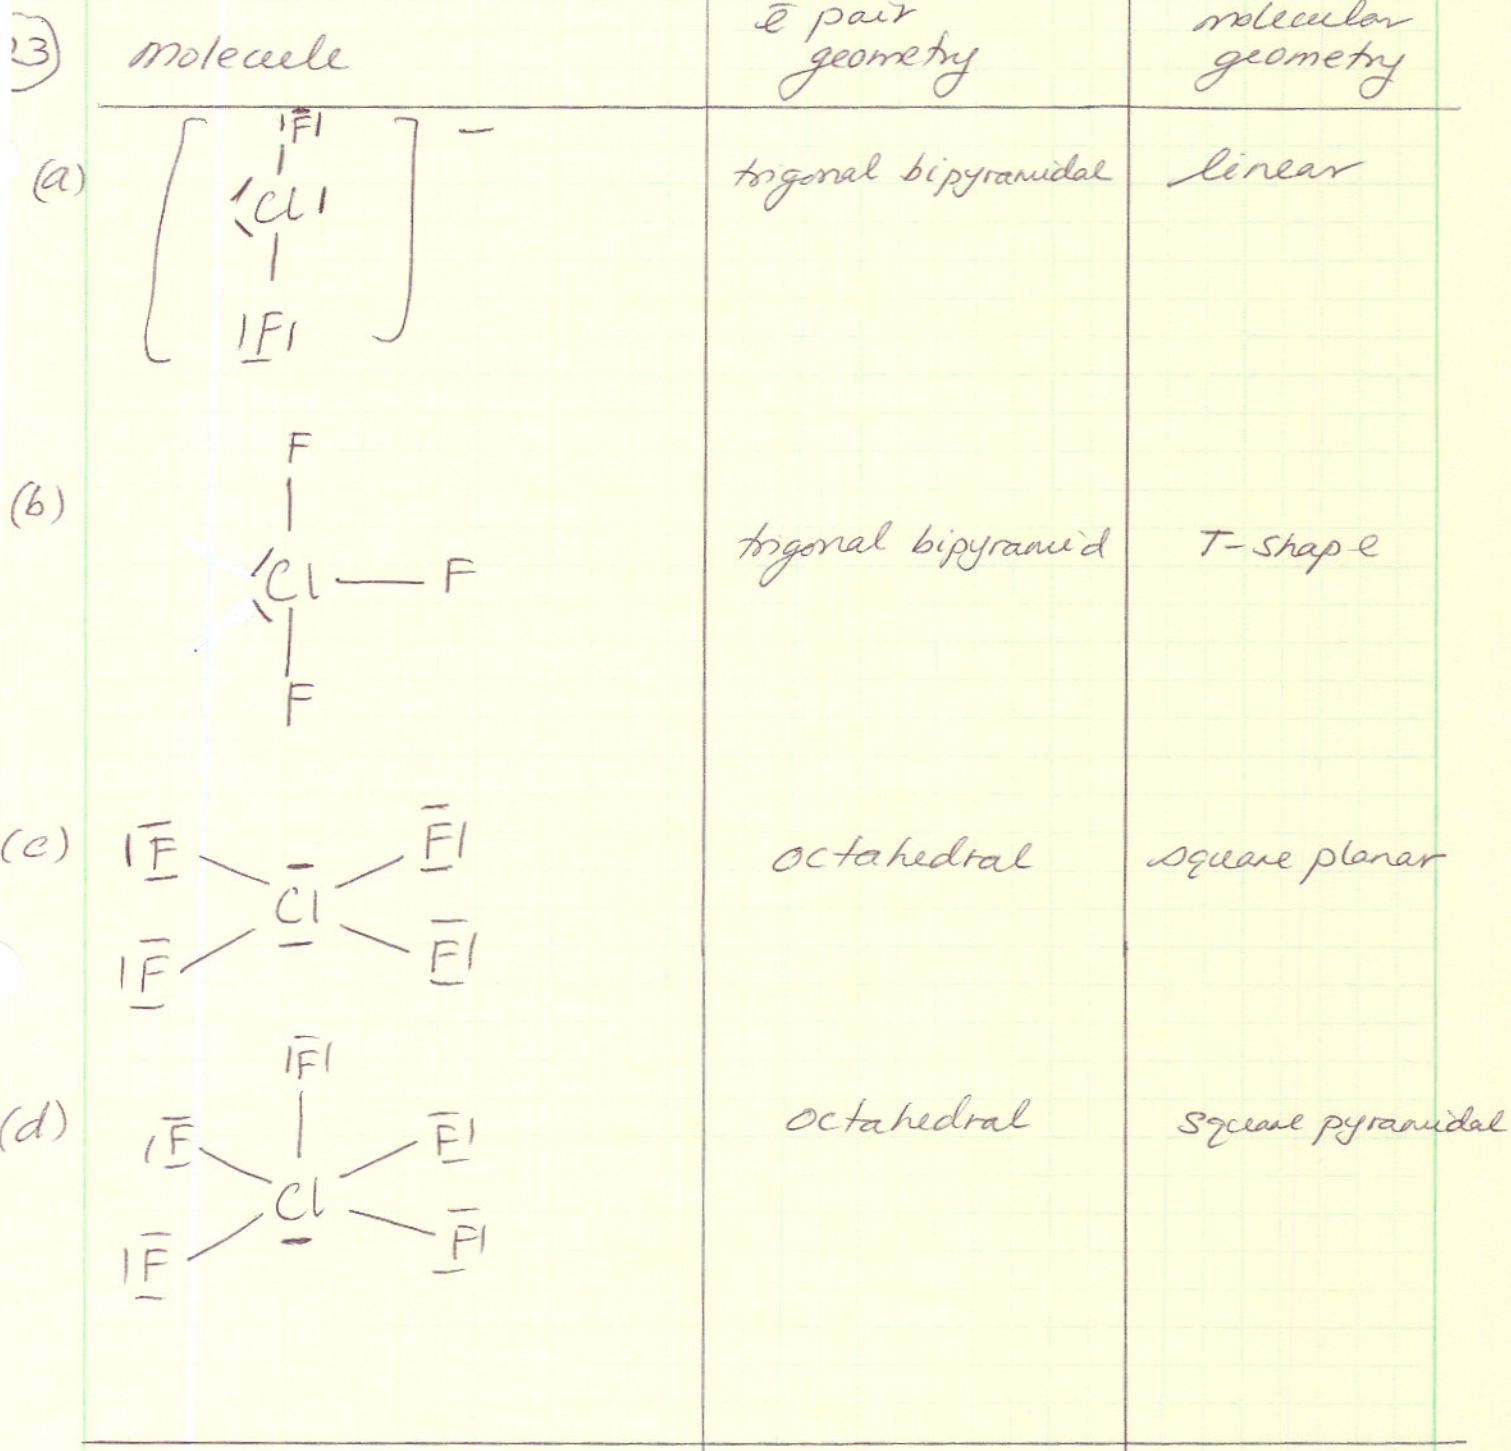 23) molecule
ē pair
geometry
molecular
geometry
(a)
F
Cl
F
−
trigonal bipyramidal
linear
(b)
F
Cl — F
F
trigonal bipyramid
T-shape
(c)
F F
Cl
F F
octahedral
square planar
(d)
F
F F
Cl
F F
octahedral
square pyramidal